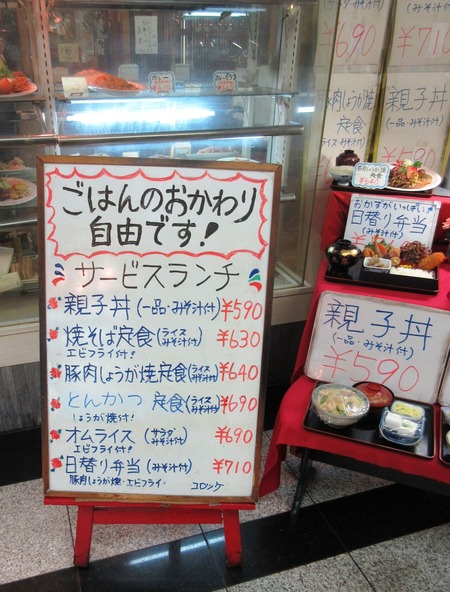 ごはんのおかわり
自由です!
サービスランチ
親子丼(一品・みそ汁付)¥590
焼そば定食(ライスみそ汁付)¥630
エビフライ付!
豚肉しょうが焼定食(ライスみそ汁付)¥640
とんかつ定食(ライスみそ汁付)¥690
しょうが焼付!
オムライス(サラダみそ汁付)¥690
エビフライ付!
日替り弁当(みそ汁付)¥710
豚肉しょうが焼・エビフライ・コロッケ
¥690
(みそ汁付)
¥710
豚肉しょうが焼
定食
親子丼
(一品・みそ汁付)
おかずがいっぱい
日替り弁当
(みそ汁付)
親子丼
(一品・みそ汁付)
¥590